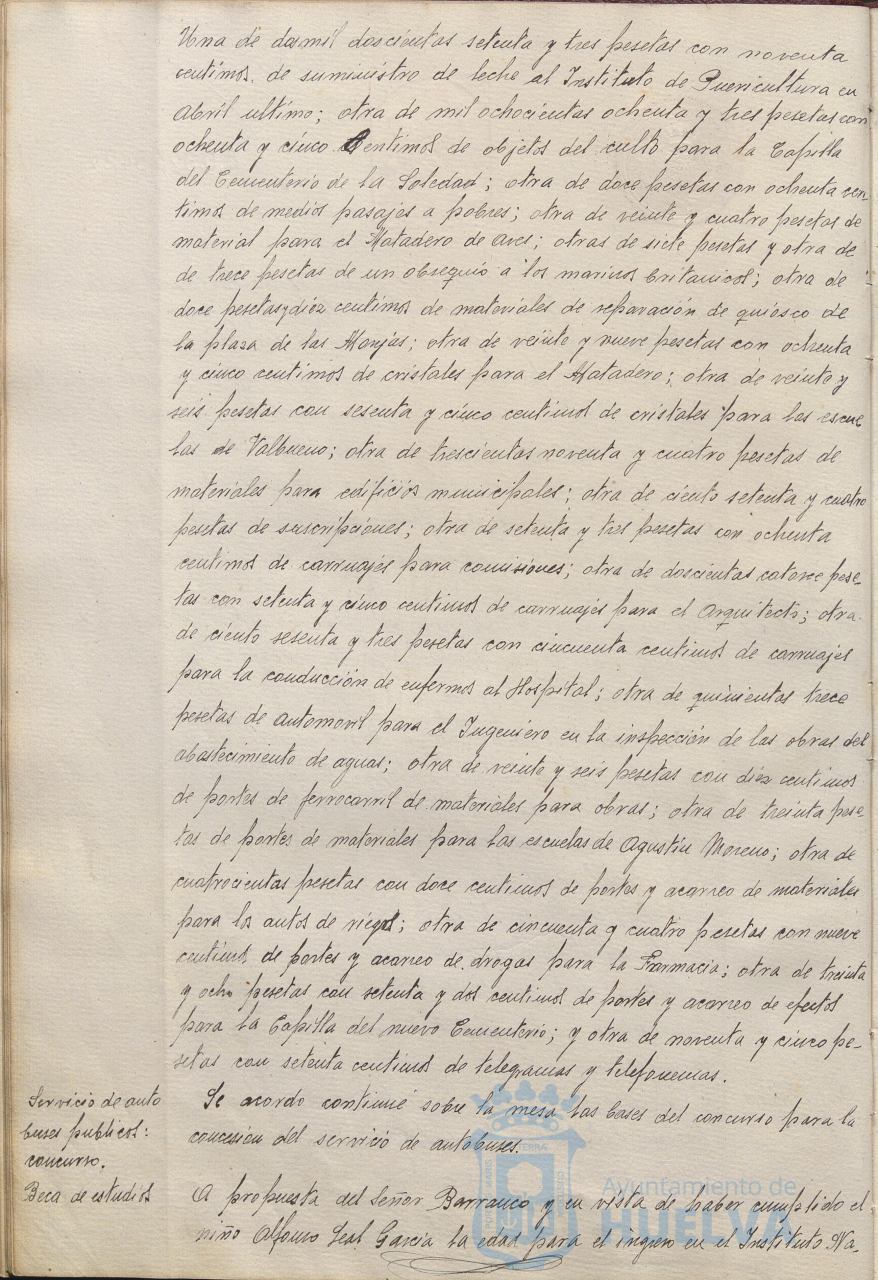 Una de dosmil doscientas setenta y tres pesetas con noventa
centimos de suministro de leche al Instituto de Puericultura en
Abril ultimo; otra de mil ochocientas ochenta y tres pesetas con
ochenta y cinco centimos de objetos del culto para la Capilla
del Cementerio de la Soledad; otra de doce pesetas con ochenta cen-
timos de medios pasajes a pobres; otra de veinte y cuatro pesetas de
material para el Matadero de aves; otras de siete pesetas y otra de
de trece pesetas de un obsequio a los marinos britanicos; otra de
doce pesetas y diez centimos de materiales de reparación de quiosco de
la plaza de las Monjas; otra de veinte y nueve pesetas con ochenta
y cinco centimos de cristales para el Matadero; otra de veinte y
seis pesetas con sesenta y cinco centimos de cristales para las escue
las de Valbueno; otra de trescientas noventa y cuatro pesetas de
materiales para edificios municipales; otra de ciento setenta y cuatro
pesetas de suscripciones; otra de setenta y tres pesetas con ochenta
centimos de carruajes para comisiones; otra de doscientas catorce pese-
tas con setenta y cinco centimos de carruajes para el Arquitecto; otra
de ciento sesenta y tres pesetas con cincuenta centimos de carruajes
para la conducción de enfermos al Hospital; otra de quinientas trece
pesetas de automovil para el Ingeniero en la inspección de las obras del
abastecimiento de aguas; otra de veinte y seis pesetas con diez centimos
de portes de ferrocarril de materiales para obras; otra de treinta pese-
tas de portes de materiales para las escuelas de Agustin Moreno; otra de
cuatrocientas pesetas con doce centimos de portes y acarreo de materiales
para los autos de riegos; otra de cincuenta y cuatro pesetas con nueve
centimos de portes y acarreo de drogas para la Farmacia; otra de treinta
y ocho pesetas con setenta y dos centimos de portes y acarreo de efectos
para la Capilla del nuevo Cementerio; y otra de noventa y cinco pe-
setas con setenta centimos de telegramas y telefonemas.
Servicio de auto
buses publicos:
concurso.
Se acordo continue sobre la mesa las bases del concurso para la
concesion del servicio de autobuses.
Beca de estudios
A propuesta del Señor Barranco y en vista de haber cumplido el
niño Alfonso Leal Garcia la edad para el ingreso en el Instituto Na-
Ayuntamiento de
HUELVA